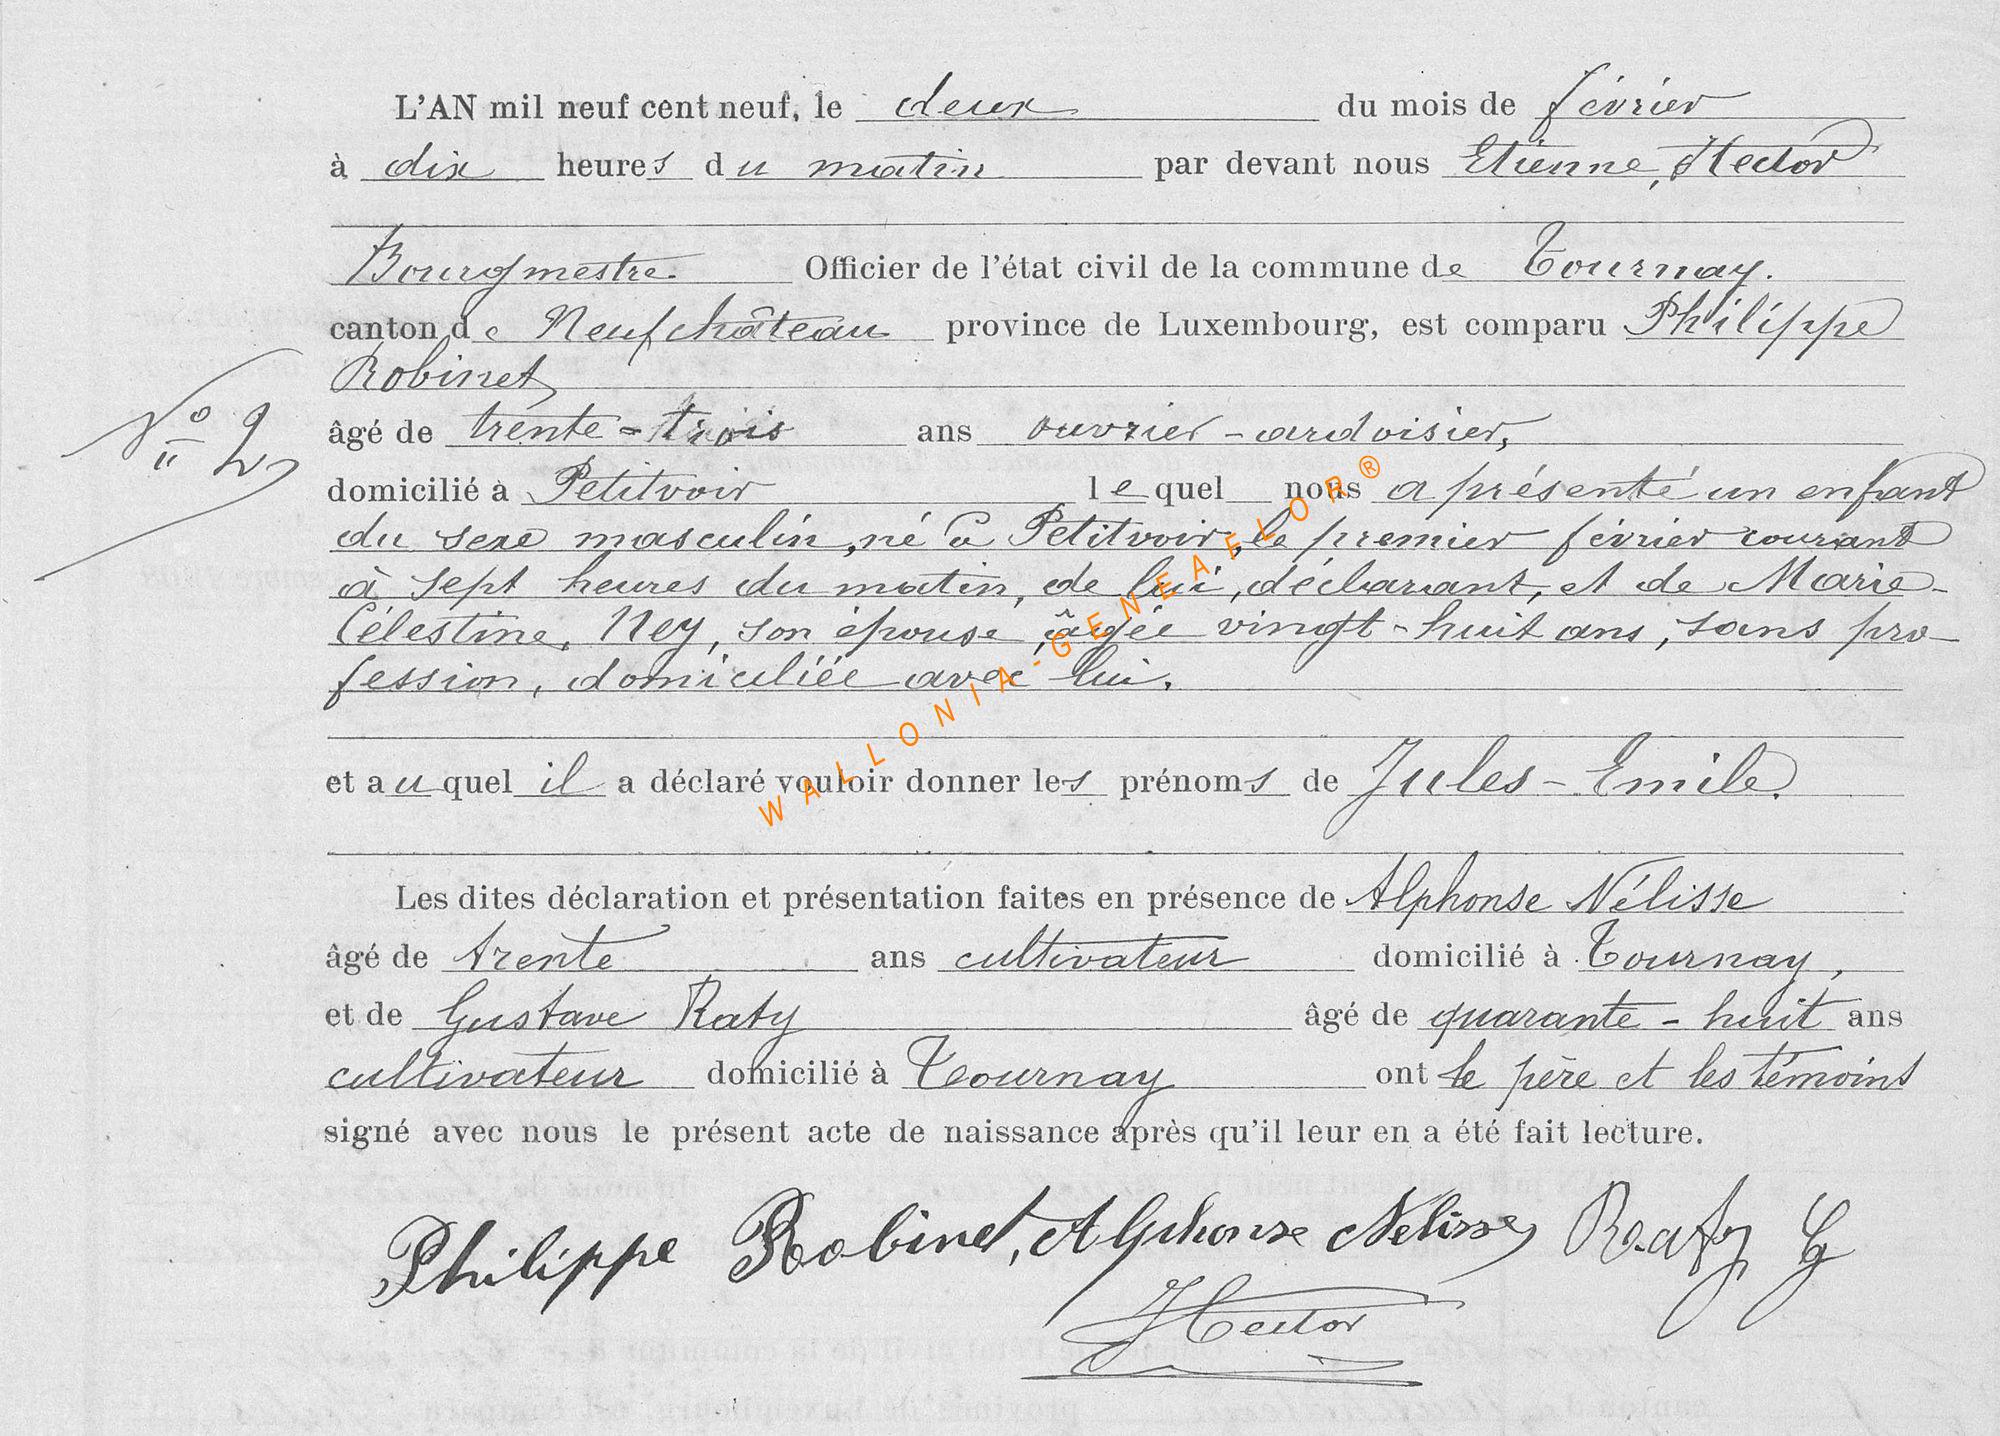 L'AN mil neuf cent neuf, le deux du mois de février
à dix heures du matin par devant nous Etienne, Hector
Bourgmestre. Officier de l'état civil de la commune de Tournay.
canton de Neufchâteau province de Luxembourg, est comparu Philippe
Robinet
N° 2
âgé de trente-trois ans ouvrier-ardoisier,
domicilié à Petitvoir lequel nous a présenté un enfant
du sexe masculin, né à Petitvoir, le premier février courant
à sept heures du matin, de lui, déclarant, et de Marie-
Célestine, Ney, son épouse, âgée vingt-huit ans, sans pro-
fession, domiciliée avec lui.
et auquel il a déclaré vouloir donner les prénoms de Jules-Emile.
Les dites déclaration et présentation faites en présence de Alphonse Nélisse
âgé de trente ans cultivateur domicilié à Tournay,
et de Gustave Raty âgé de quarante-huit ans
cultivateur domicilié à Tournay ont le père et les témoins
signé avec nous le présent acte de naissance après qu'il leur en a été fait lecture.
Philippe Robinet, Alphonse Nelisse Raty G
Hector
WALLONIA-GENEAFLOR®